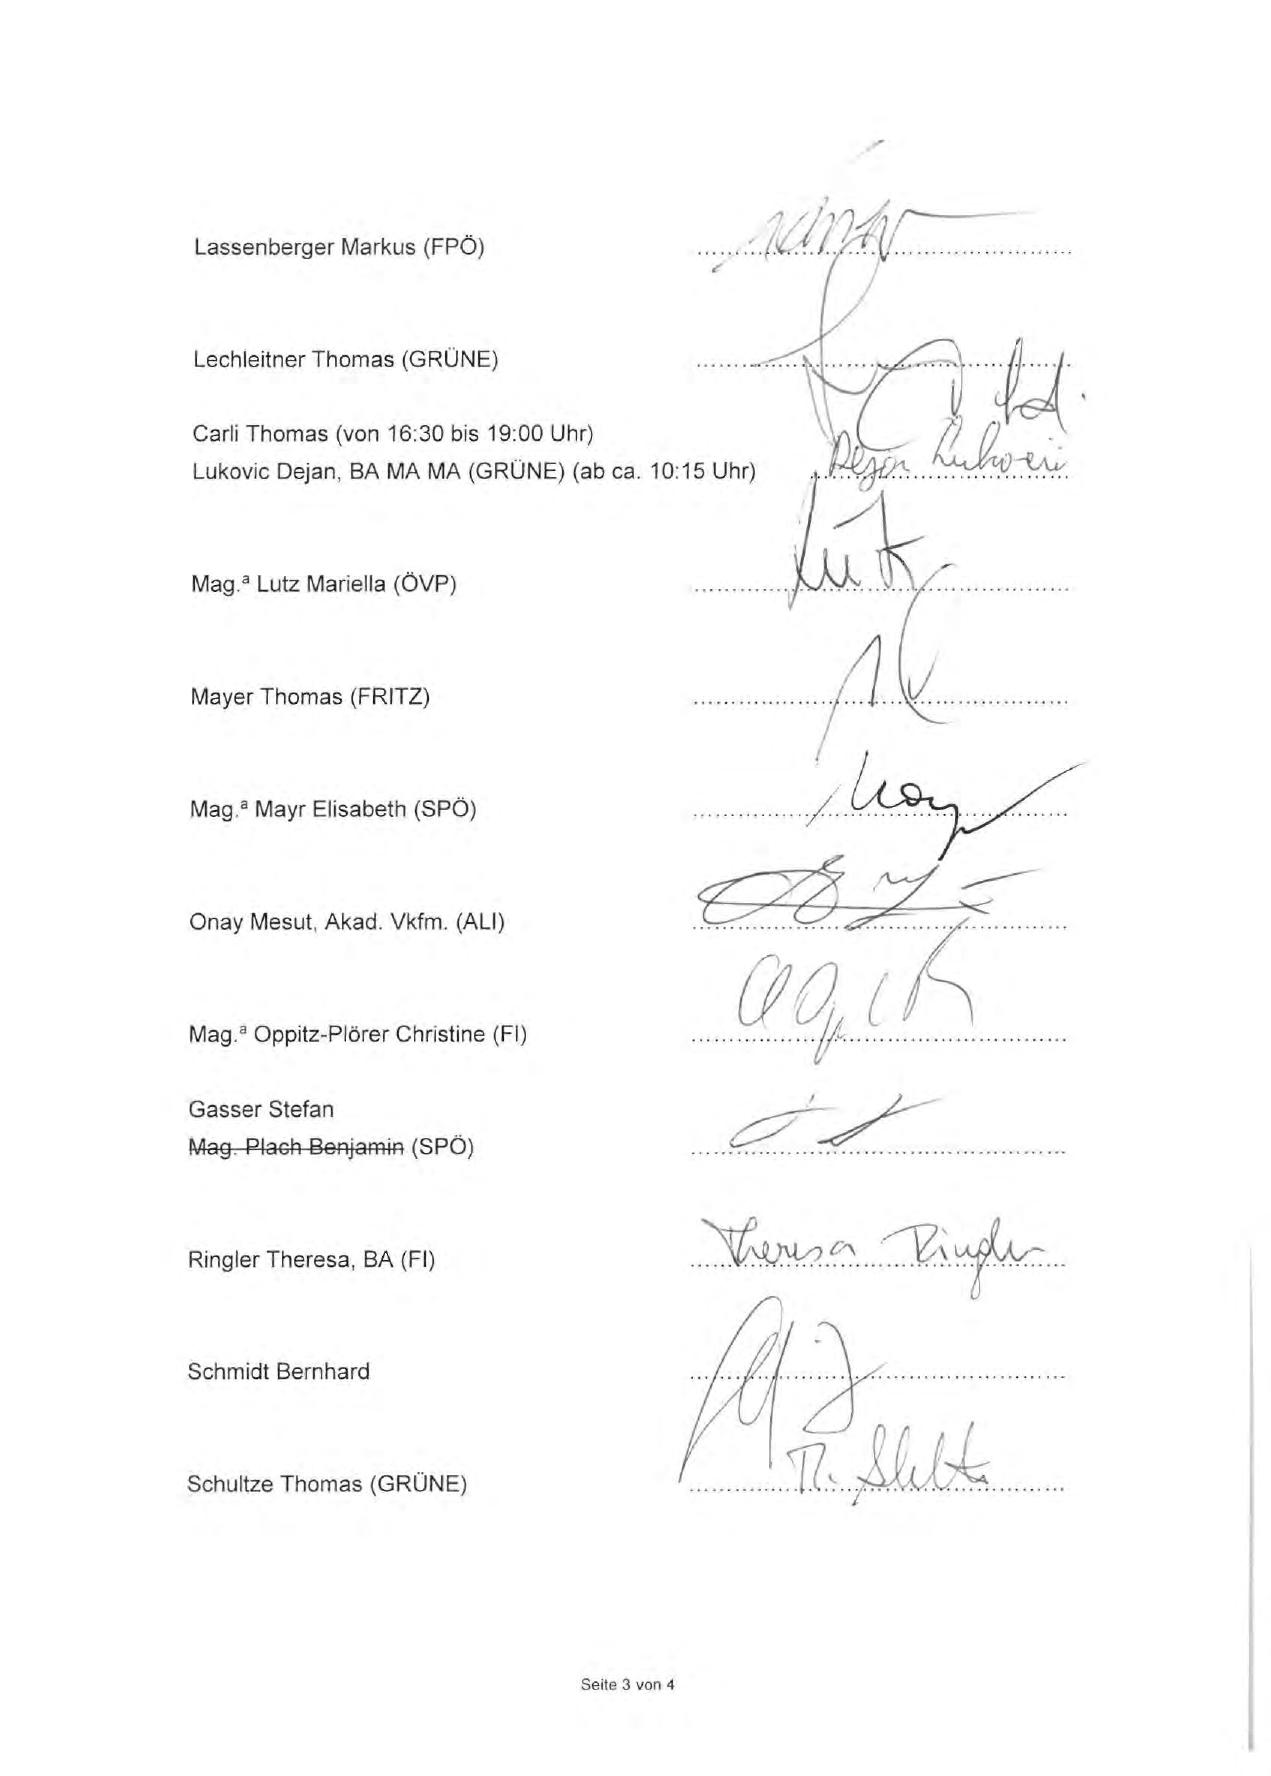 Lassenberger Markus (FPÖ)
Lechleitner Thomas (GRÜNE)
Carli Thomas (von 16:30 bis 19:00 Uhr)
Lukovic Dejan, BA MA MA (GRÜNE) (ab ca. 10:15 Uhr) Dejan Lukovic
Mag.ª Lutz Mariella (ÖVP) Lutz
Mayer Thomas (FRITZ)
Mag.ª Mayr Elisabeth (SPÖ)
Onay Mesut, Akad. Vkfm. (ALI)
Mag.ª Oppitz-Plörer Christine (FI)
Gasser Stefan
Mag. Plach Benjamin (SPÖ)
Ringler Theresa, BA (FI) Theresa Ringler
Schmidt Bernhard
Schultze Thomas (GRÜNE)
Seite 3 von 4